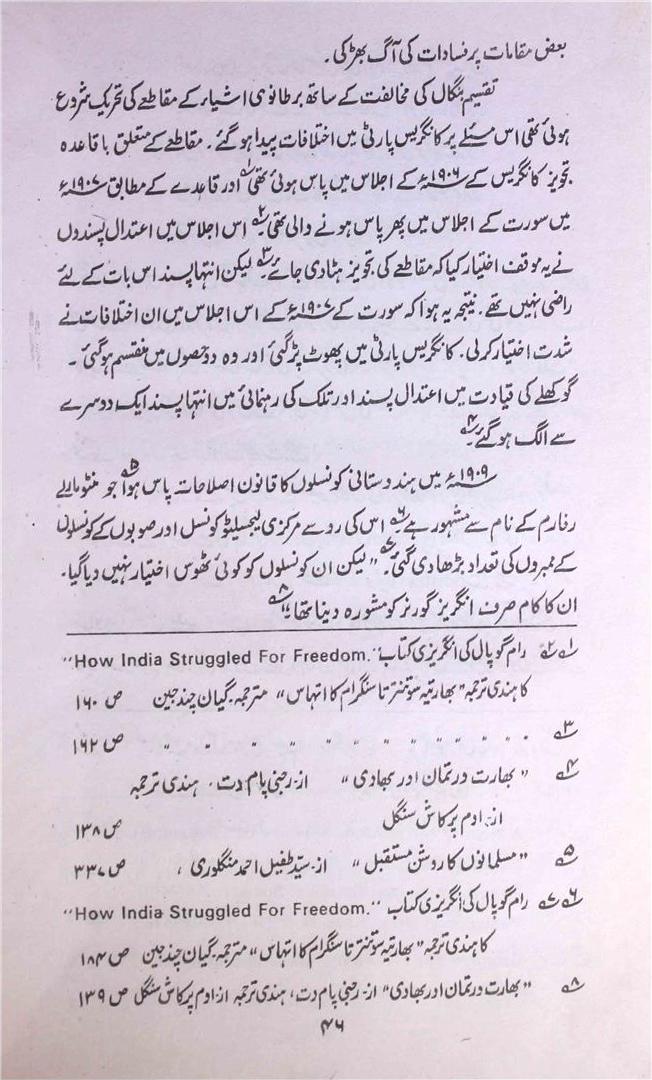 بعض مقامات پر فسادات کی آگ بھڑکی ۔
تقسیم بنگال کی مخالفت کے ساتھ برطانوی اشیاء کے مقاطعے کی تحریک شروع
ہوئی تھی اس مسئلے پر کانگریس پارٹی میں اختلافات پیدا ہو گئے ۔ مقاطعے کے متعلق باقاعدہ
تجویز کانگریس کے ۱۹۰۶ء کے اجلاس میں پاس ہوئی تھی۱؎ اور قاعدے کے مطابق ۱۹۰۷ء
میں سورت کے اجلاس میں پھر پاس ہونے والی تھی۲؎ اس اجلاس میں اعتدال پسندوں
نے یہ موقف اختیار کیا کہ مقاطعے کی تجویز ہٹا دی جائے۳؎ لیکن انتہا پسند اس بات کے لئے
راضی نہیں تھے ۔ نتیجہ یہ ہوا کہ سورت کے ۱۹۰۷ء کے اس اجلاس میں ان اختلافات نے
شدت اختیار کر لی ۔ کانگریس پارٹی میں پھوٹ پڑ گئی اور وہ دو حصوں میں منقسم ہو گئی ۔
گوکھلے کی قیادت میں اعتدال پسند اور تلک کی رہنمائی میں انتہا پسند ایک دوسرے
سے الگ ہو گئے۴؎
۱۹۰۹ء میں ہندوستانی کونسلوں کا قانون اصلاحات پاس ہوا۵؎ جو منٹو مارلے
رفارم کے نام سے مشہور ہے۶؎ اس کی رو سے مرکزی لیجسلیٹو کونسل اور صوبوں کے کونسلوں
کے ممبروں کی تعداد بڑھا دی گئی۷؎ "لیکن ان کونسلوں کو کوئی ٹھوس اختیار نہیں دیا گیا ۔
ان کا کام صرف انگریز گورنر کو مشورہ دینا تھا"۸؎
۱؎ ۲؎ رام گوپال کی انگریزی کتاب "How India Struggled For Freedom."
کا ہندی ترجمہ "بھارتیہ سوتنترتا سنگرام کا اتہاس" مترجمہ ۔ گیان چند جین ص ۱۶۰
۳؎ " " " " " " " " " " ص ۱۶۲
۴؎ "بھارت ورتمان اور بھاوی" از ۔ رجنی پام دت ، ہندی ترجمہ
از ۔ اوم پرکاش سنگل ص ۱۳۸
۵؎ "مسلمانوں کا روشن مستقبل" از ۔ سید طفیل احمد منگلوری ، ص ۳۳۷
۶؎ ۷؎ رام گوپال کی انگریزی کتاب "How India Struggled For Freedom."
کا ہندی ترجمہ "بھارتیہ سوتنترتا سنگرام کا اتہاس" مترجمہ ۔ گیان چند جین ص ۱۸۴
۸؎ "بھارت ورتمان اور بھاوی" از ۔ رجنی پام دت ، ہندی ترجمہ از ۔ اوم پرکاش سنگل ص ۱۳۹
۴۶